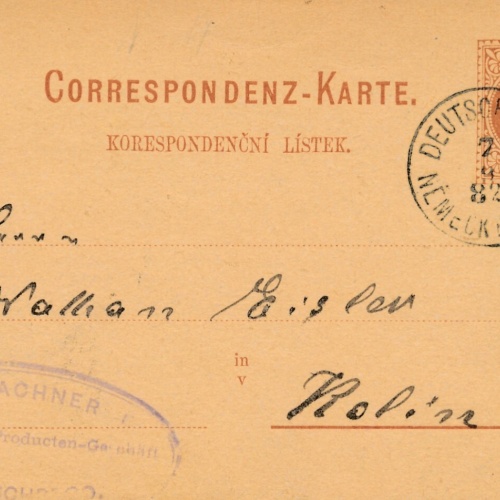 CORRESPONDENZ-KARTE.
KORESPONDENČNÍ LÍSTEK.
DEUTSCH
7
82
NĚMECK
Herrn
Nathan Eisler
in
v
Kolin
ACHNER
Producten-Geschäft